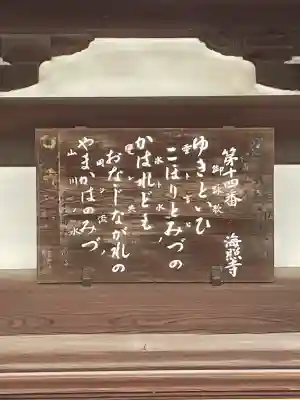 第十四番 海照寺
御詠歌
ゆきといひ
こほりとみづの
かはれども
おなじながれの
やまかはのみづ
山川ノ水